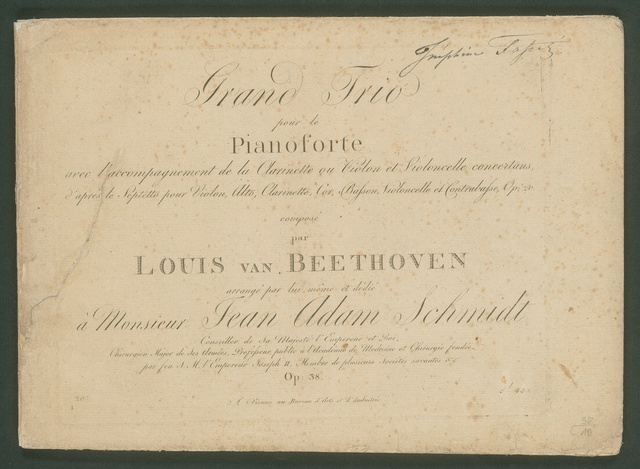 Grand Trio
pour le
Pianoforte
avec l'accompagnement de la Clarinette ou Violon et Violoncelle concertans,
d'après le Septetto pour Violon, Alto, Clarinette, Cor, Basson, Violoncelle et Contrabasse, Op: 20
composé
par
LOUIS VAN BEETHOVEN
arrangé par lui même et dédié
à Monsieur Jean Adam Schmidt
Conseiller de Sa Majesté l'Empereur et Roi,
Chirurgien Major de ses Armées, Professeur public à l'Académie de Médecine et Chirurgie fondée
par feu S. M. l'Empereur Joseph II. Membre de plusieurs Societés savantes &c
Op. 38.
A Vienne au Bureau d'Arts et d'Industrie